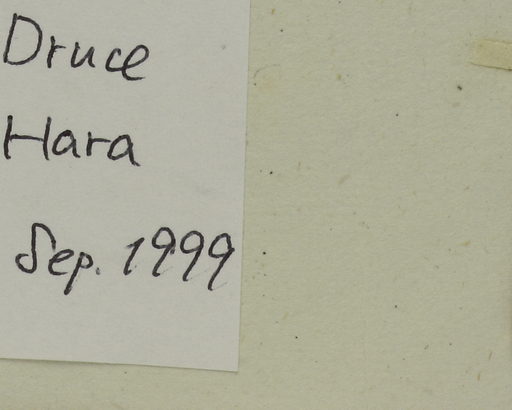 Druce
Hara
Sep. 1999